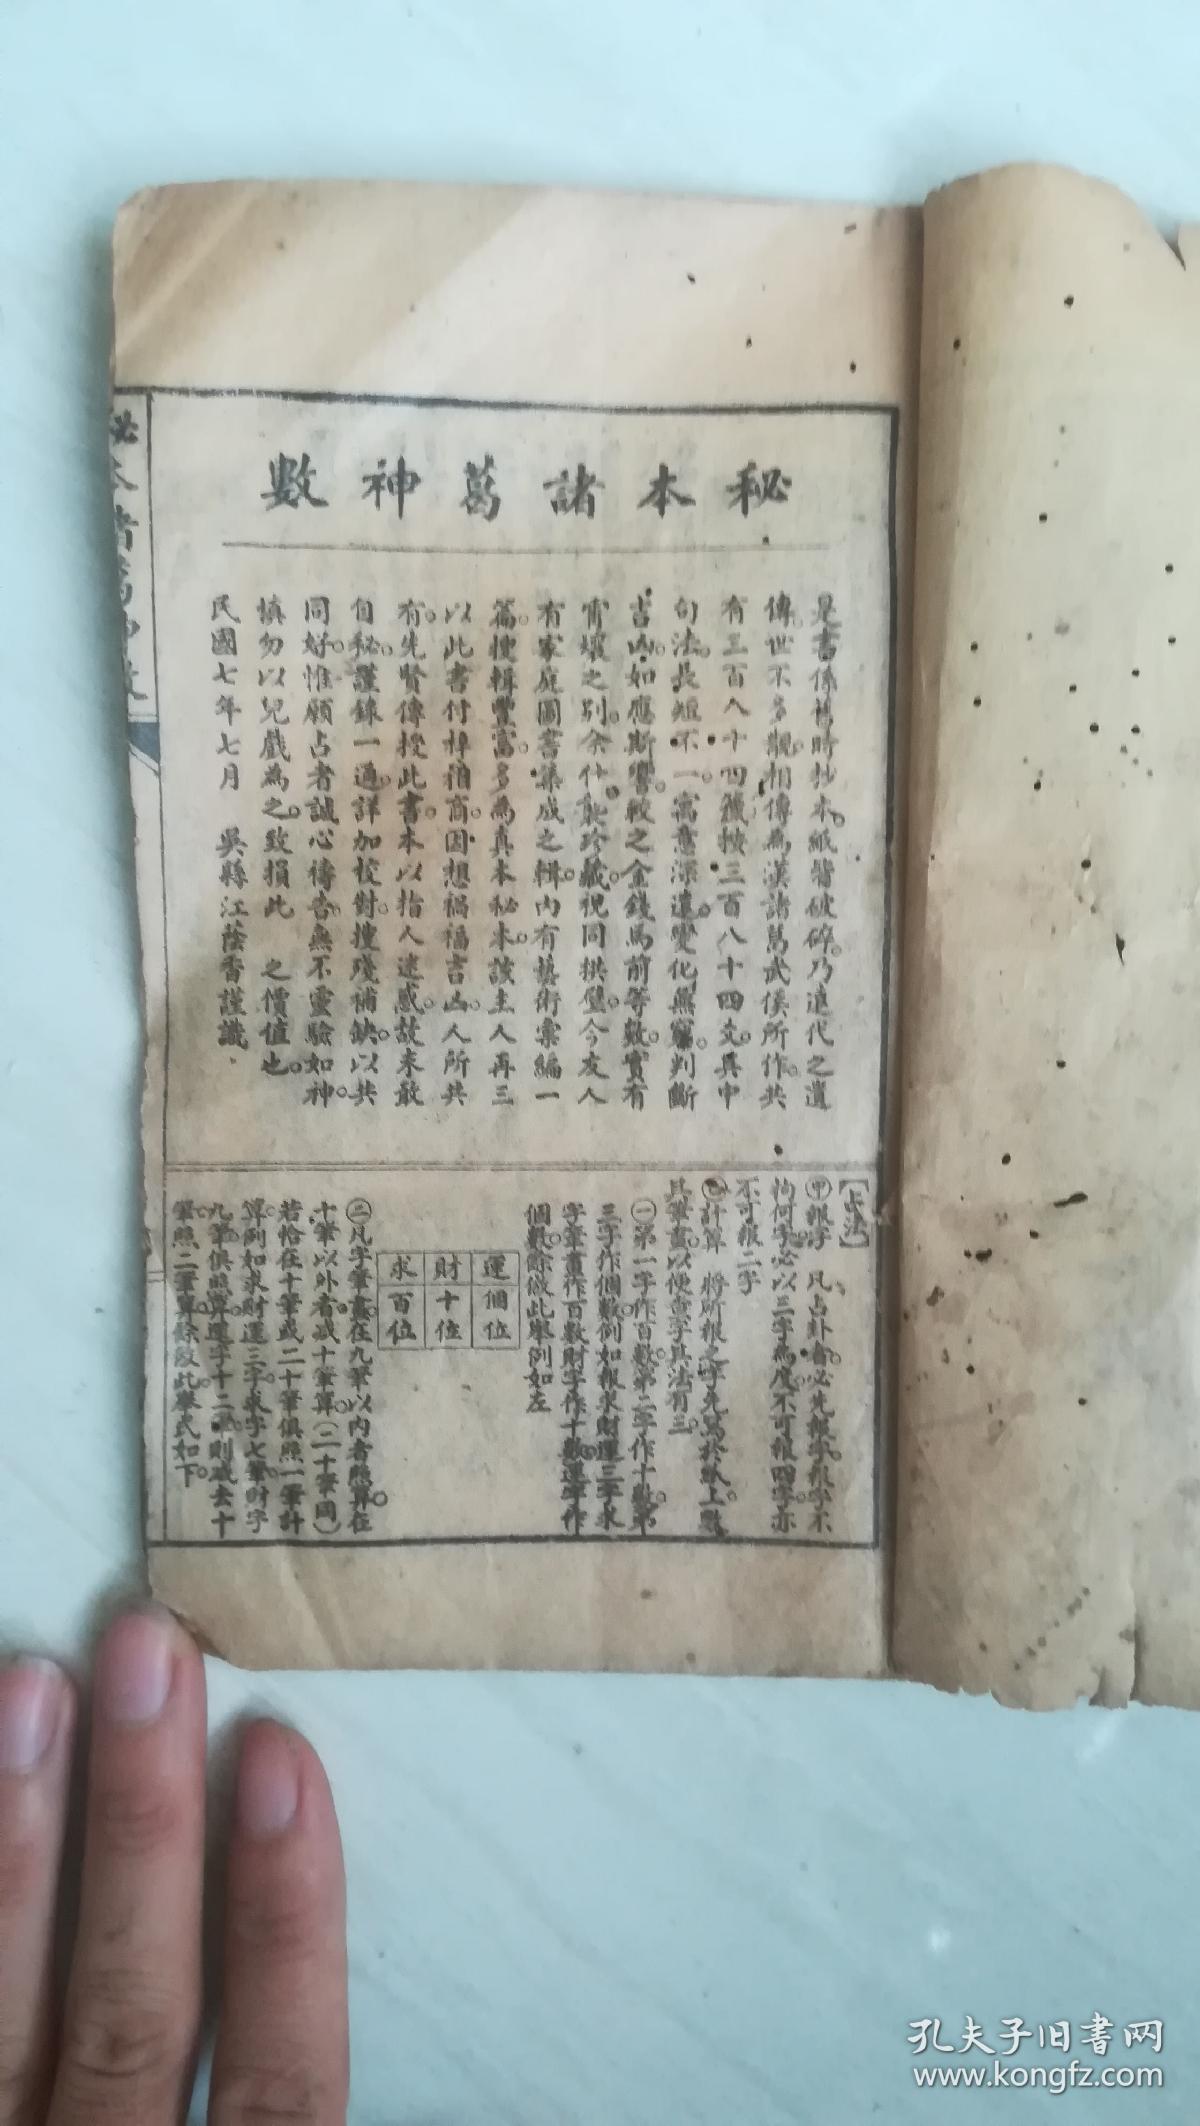 秘本諸葛神數
是書係舊時抄本。紙皆破碎。乃遠代之遺
傳。世不多覯。相傳爲漢諸葛武侯所作。共
有三百八十四籤。按三百八十四爻。其中
句法。長短不一。寓意深遠。變化無窮。判斷
吉凶。如應斯響。較之金錢馬前等數。實有
霄壤之別。余什襲珍藏。視同拱璧。今友人
有家庭圖書集成之輯。內有藝術彙編一
篇。搜輯豐富。多爲真本秘本。該主人再三
以此書付梓相商。因想禍福吉凶。人所共
有。先賢傳授此書。本以指人迷惑。故未敢
自秘。謹錄一過。詳加校對。搜殘補缺。以共
同好。惟願占者誠心禱告。無不靈驗如神。
慎勿以兒戲為之。致損此 之價值也。
民國七年七月 吳縣江蔭香謹識
【占法】
㊥報字 凡占卦者。必先報字。報字不
拘何字。必以三字爲度。不可報四字。亦
不可報二字
計算 將所報之字。先寫於紙上。數
其筆畫。以便查字。其法有三。
㊀第一字作百數。第二字作十數。第
三字作個數。例如報求財運三字。求
字筆畫作百數。財字作十數。運字作
個數。餘倣此。舉例如左
運 財 求
個位 十位 百位
㊁凡字筆畫。在九筆以內者照算。在
十筆以外者。減十筆算（二十筆同）
若恰在十筆或二十筆。俱照一筆計
算。例如求財運三字。求字七筆。財字
九筆。俱照算。運字十二。則減去十
筆。照二筆算。餘倣此。舉式如下。
秘本諸葛神數
孔夫子旧书网
www.kongfz.com